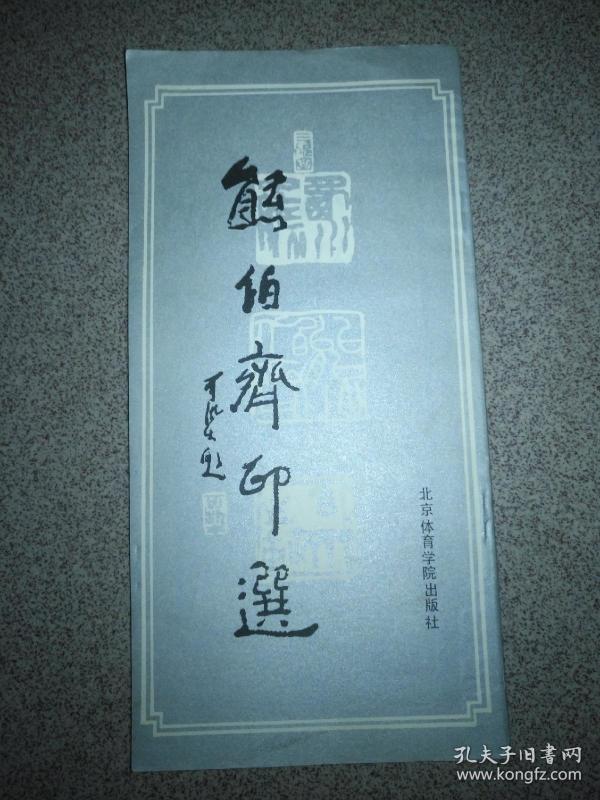 熊伯齊印選
北京体育学院出版社
孔夫子旧书网
www.kongfz.com